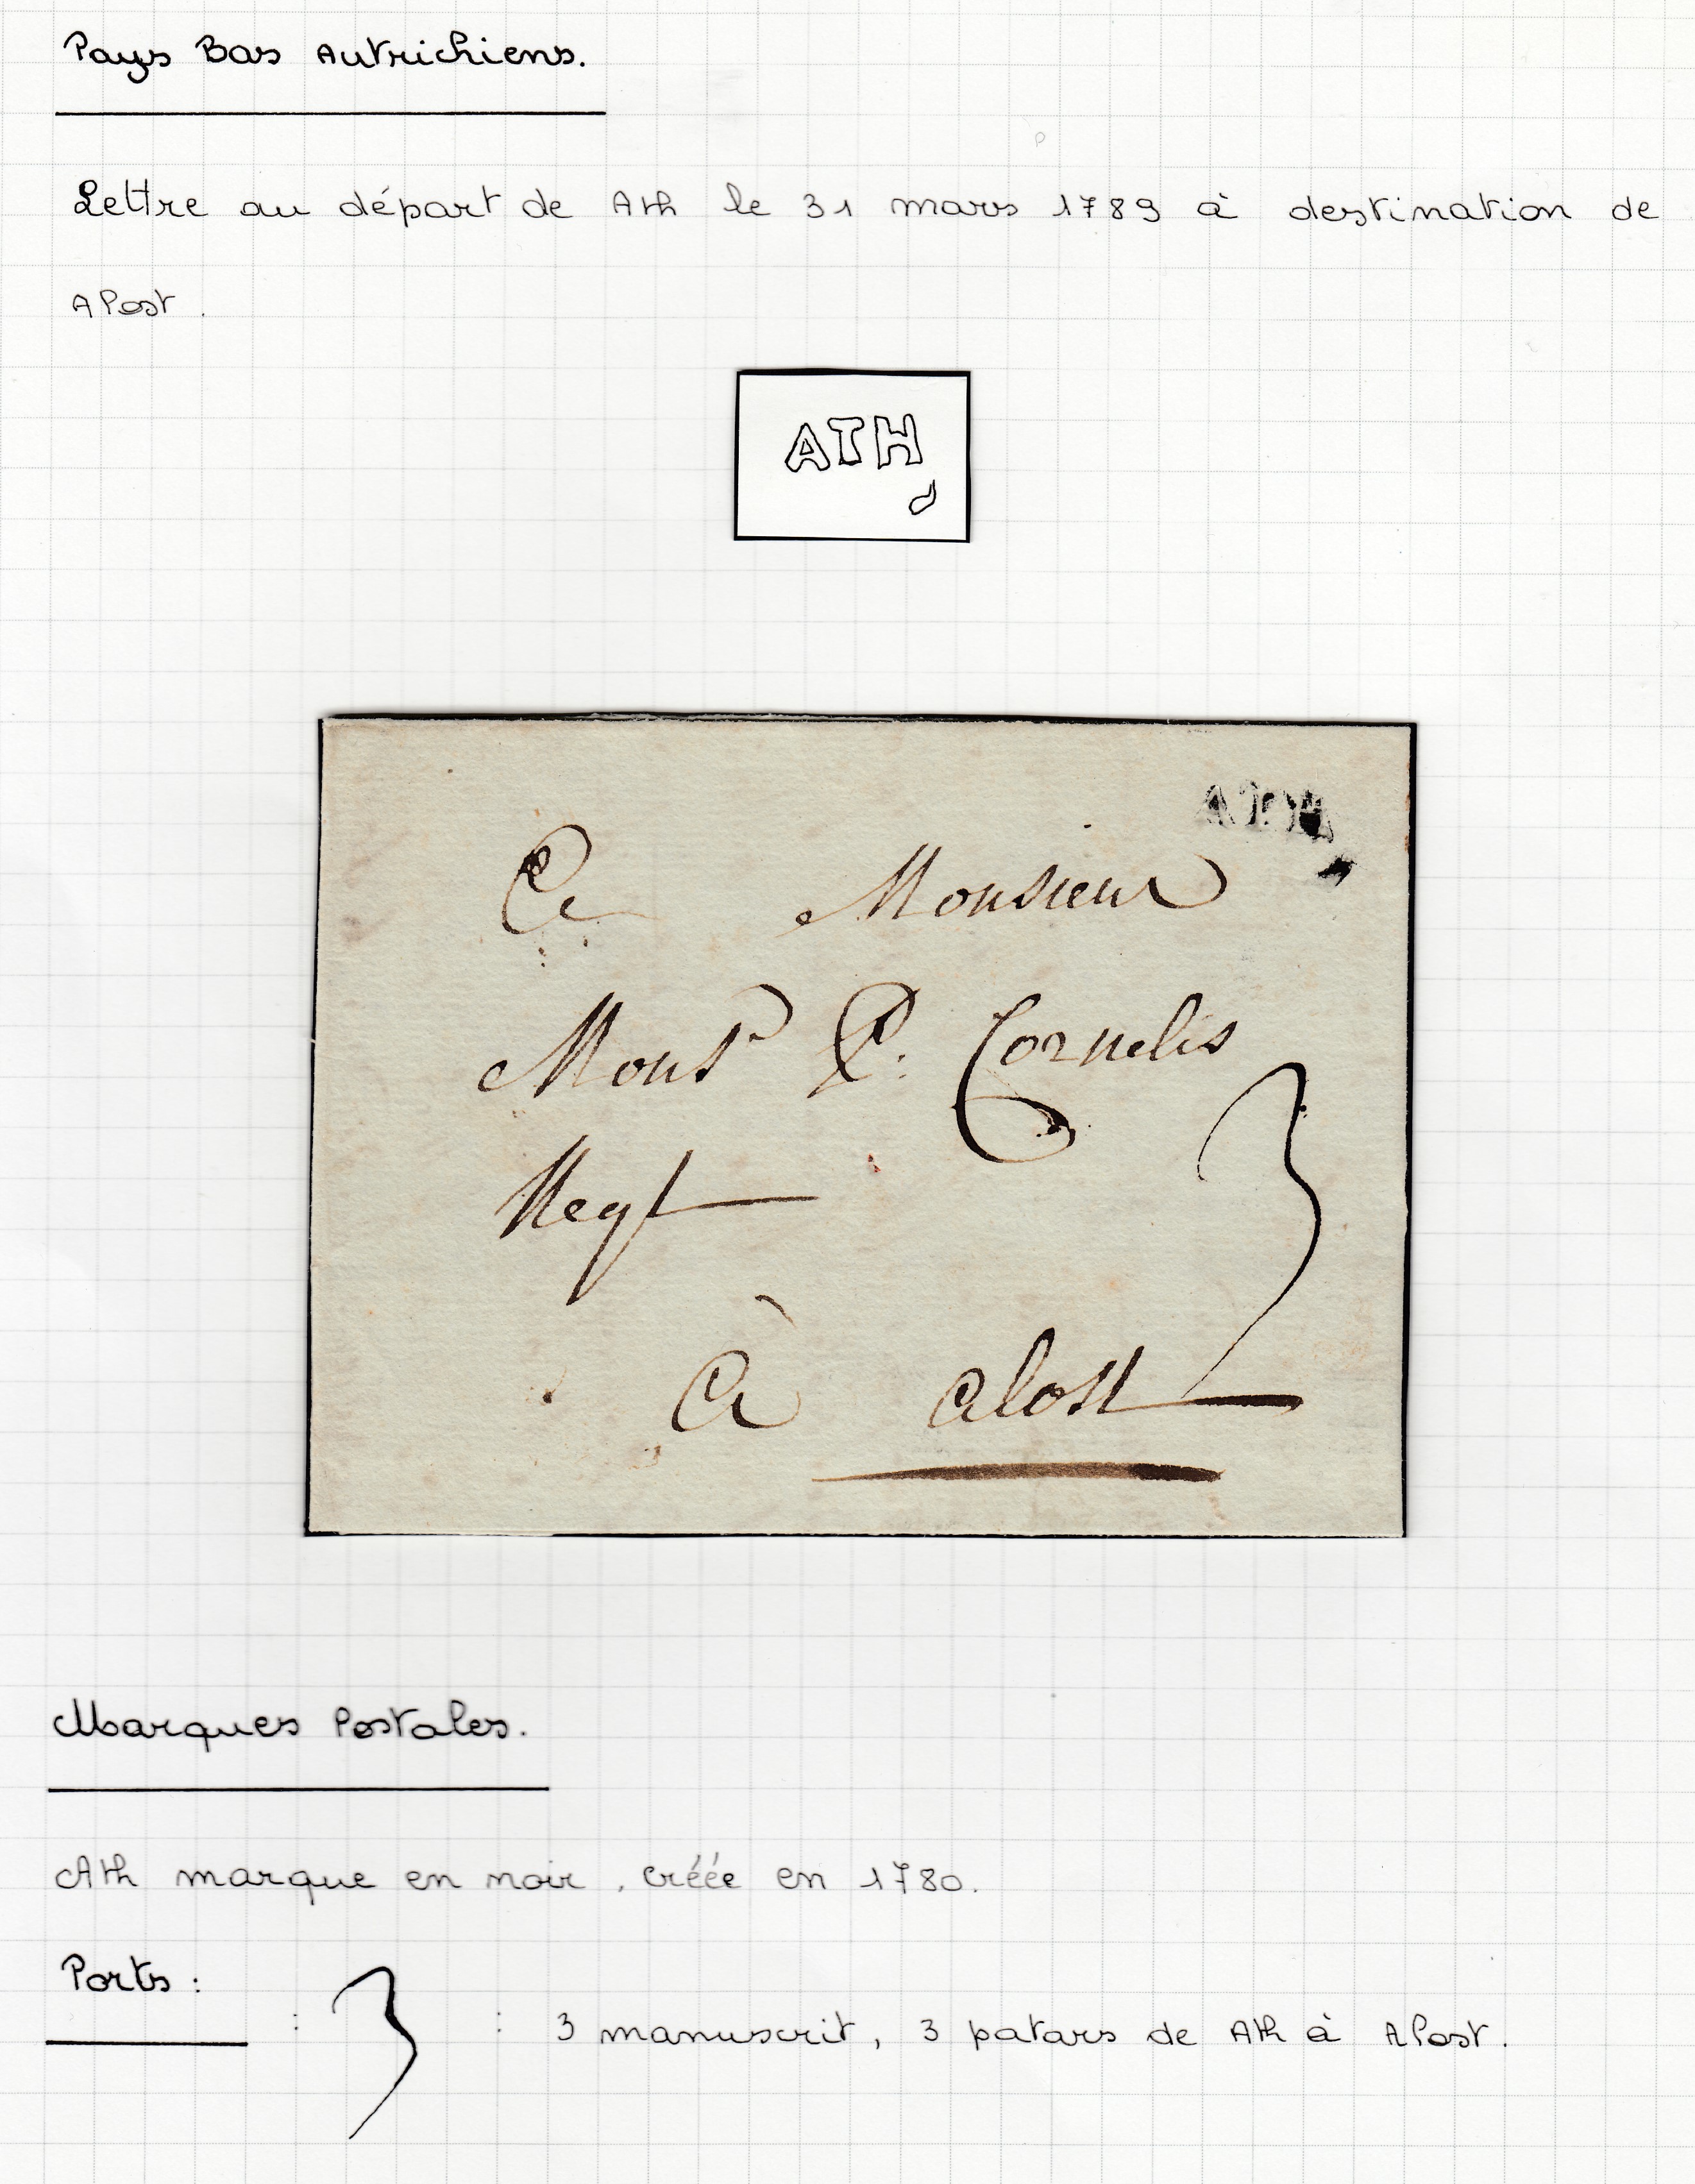 Pays Bas Autrichiens.
Lettre au départ de Ath le 31 mars 1789 à destination de
Alost.
ATH
ATH
A Monsieur
Monsr P. Cornelis
Negt
3
À alost
Marques Postales.
Ath marque en noir, créée en 1780.
Ports :
: 3 : 3 manuscrit, 3 patars de Ath à Alost.